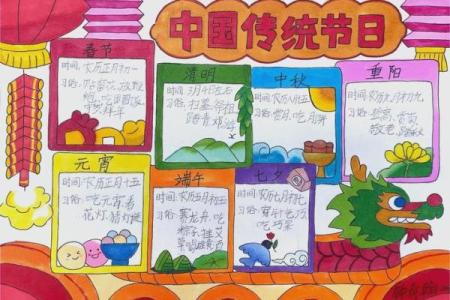 中国传统节日
春节
时间:农历正月初一
习俗:贴窗花,放鞭
炮,吃团圆饭,
清明
时间:4月4日左右
习俗:扫墓祭祖
踏青
中秋
时间:农历八月十五
习俗:赏月,吃月饼
重阳
时间:农历九月初九
习俗:登高,赏菊
敬老
元宵
时间:农历正月十五
习俗:吃元宵,看
花灯,猜灯谜
端午
时间:农历五月初五
习俗:赛龙舟,吃
粽子,挂艾
草
七夕
时间:农历七月初七
习俗:穿针乞巧
吃巧果